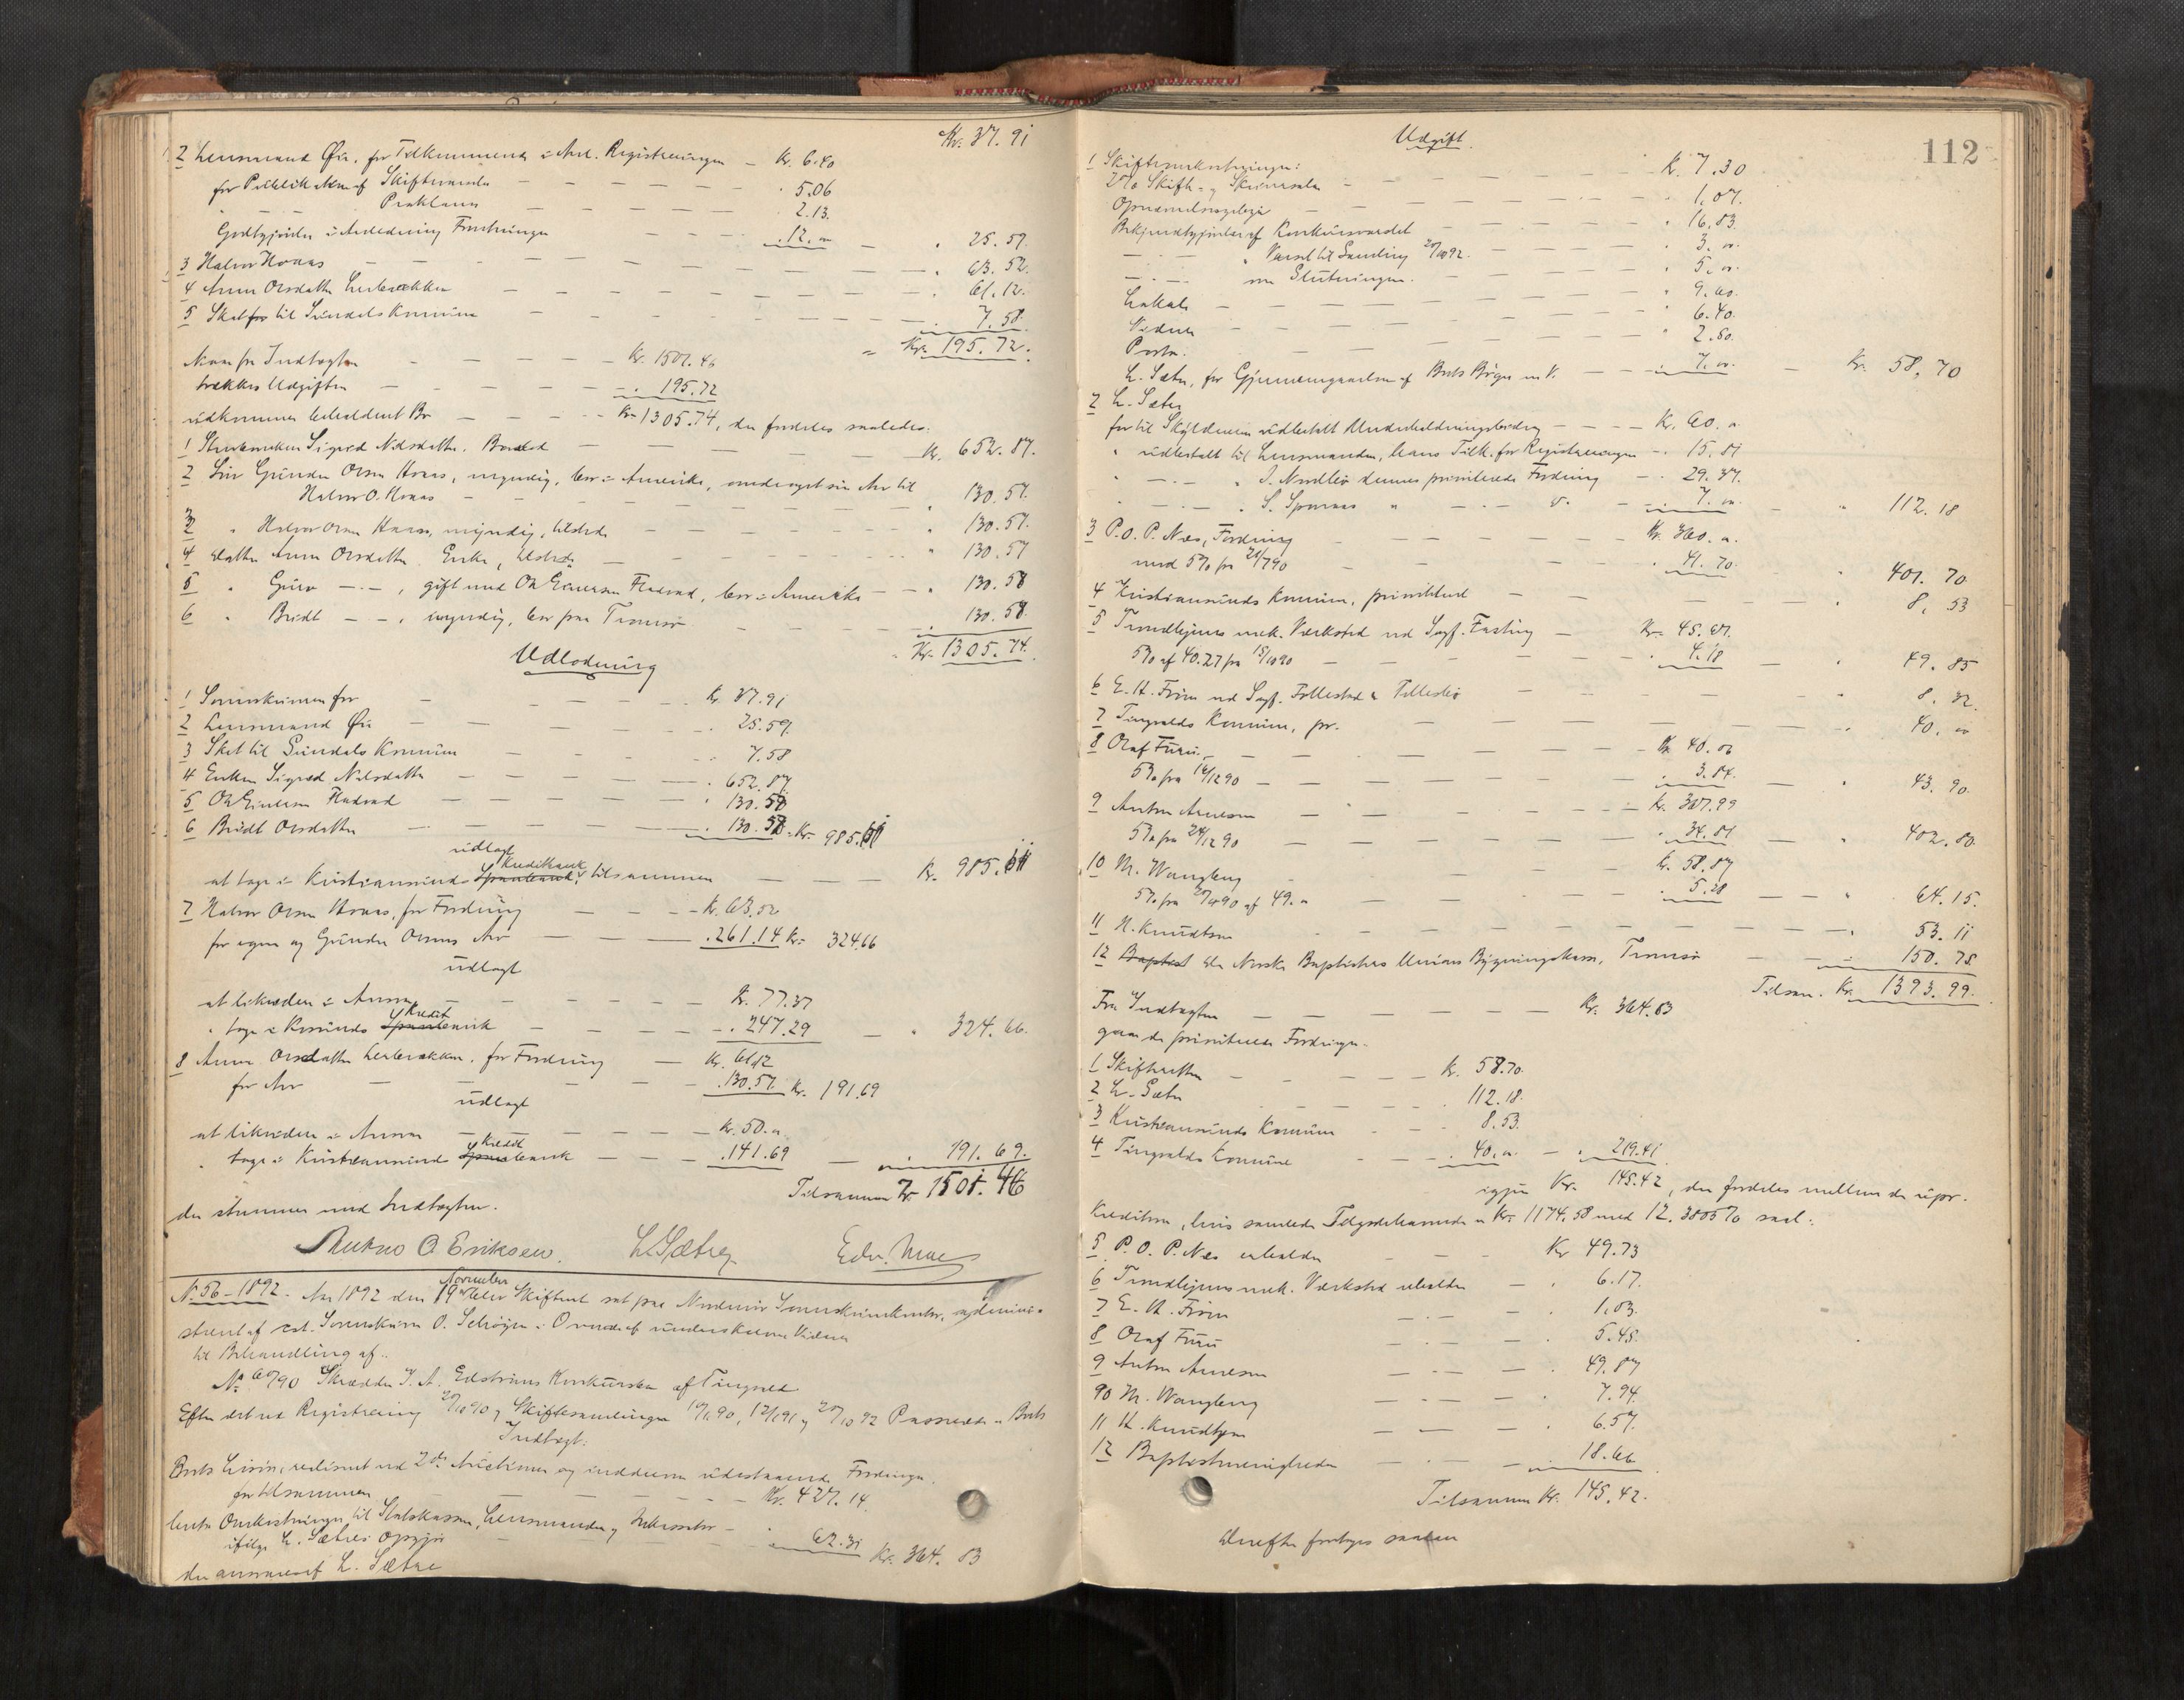 Kr. 37.91
2 Lensmand Øie for Tilkommende i Anl. Registreringen — Kr. 6.40
for Publikation af Skiftesamla — — 5.06
Proklama — — 2.13.
Godtgjørelse i Anledning Forretningen — — 12. „ — „ 25.59.
3 Halvor Hoaas — — 63.52.
4 Anne Olsdatter — — 61.12.
5 Skat til Sundals Kommune — — 7.58.
= Kr. 195.72.
Naar fra Indtægten — — Kr. 1501.46
trækkes Udgiften — — 195.72
udkommer beholdent Bo — — Kr. 1305.74, der fordeles saaledes:
1 Sterboenken Sigrid Nilsdatter, Boslod — — Kr. 652.87.
2 Søn Gunder Olsen Hoaas, myndig, bor i Amerika, overdraget sin Arv til
Halvor O. Hoaas — — 130.57.
3 „ Halvor Olsen Hoaas, myndig, tilstede — — 130.57.
4 Datter Anne Olsdatter Enke, tilstede — — 130.57
5 „ Guro — „ — , gift med Ole Einersen Fladvad, bor i Amerika — „ 130.58
6 „ Bridt — „ — , myndig, bor paa Tromsø — — 130.58
Kr. 1305.74.
Udlodning
1 Sorenskriveren for — — Kr. 37.91
2 Lensmand Øie — — 25.59.
3 Skat til Sundals Kommune — — 7.58
4 Enken Sigrid Nilsdatter — — 652.87.
5 Ole Einersen Fladvad — — 130.58
6 Bridt Olsdatter — — 130.58 = Kr. 985.11
udlagt
at tage i Kristiansunds Kreditbank, tilsammen — — Kr. 985.11
7 Halvor Olsen Hoaas, for Fordring — — Kr. 63.52
for egen og Gunder Olsens Arv — — 261.14 Kr. 324.66
udlagt
at likvidere i Ansvar — — Kr. 77.37
„ tage i Krsunds Kreditbank — — 247.29 — „ 324.66.
8 Anne Olsdatter, for Fordring — Kr. 61.12
for Arv — — 130.57. Kr. 191.69
udlagt
at likvidere i Ansvar — — Kr. 50. „
„ tage i Kristiansunds Kreditbank — — 141.69 — 191.69.
Tilsammen Kr. 1501.46
der stemmer med Indtægten.
O. Eriksen. L. Sætre Edv. Moe
N. 56 – 1892. Aar 1892 den 19de November blev Skifteret sat paa Nordmør Sorenskriverkontor, admini-
streret af cst. Sorenskriver O. Schrøyer i Overvær af underskrevne Vidner
til Behandling af:
No 60/90 Skrædder J. A. Edstrøms Konkursbo af Tingvold
Efter det ved Registrering 20/10 90 og Skiftesamlinger Passerede er Boets
Indtægt:
Boets Løsøre, realiseret ved 2de Auktioner og inddrevne udestaaende Fordringer
for tilsammen — — Kr. 427.14.
Omkostninger til Statskassen, Lensmanden og Inkassator —
ifølge L. Sætres Opgjør — — 62.31 Kr. 364.83
der ansvares af L. Sætre
112
Udgift.
1 Skifteomkostninger:
2% Skifte- og Skriversalær — — Kr. 7.30
Opnævnelsesgebyr — — 1.07.
Bekjendtgjørelse af Konkursvarslet — — 16.83.
— „ — „ Varsel til Samling 20/10 92. — — 3. „
— „ — om Slutningen. — — 5. „
Lokale — — 9.60.
Vidner — — 6.40.
Porto. — — 2.50.
L. Sætre, for Gjennemgaaelsen af Boets Bøger m. V. — — 7. „ — Kr. 58.70
2 L. Sætre
for til Skyldneren udbetalt Underholdningsbidrag — — Kr. 60. „
„ udbetalt til Lensmanden, hans Tilk. for Registreringen — „ 15.81
„ — „ — „ J. Nordlie dennes priviligerede Fordring — „ 29.37.
„ — „ — „ S. — „ — do — 7. „ — „ 112.18
3 P. O. P. Næs, Fordring — — Kr. 360. „
med 5% fra 21/7 90 — — 41.70. — „ 401.70
4 Kristiansunds Kommune, priviligeret — — 8.53
5 Trondhjems mek. Værksted ved Sagf. Fasting — Kr. 45.67.
5% af 40.27 fra 15/10 90 — — 4.18 — „ 49.85
6 E. A. Firm ved Sagf. Follestad & Tillesbø — — 8.32.
7 Tingvolds Kommune, pr. — — 40. „
8 Olaf Furu. — — Kr. 40.06
5% fra 14/12 90 — — 3.84. — „ 43.90.
9 Anton Arnesen — — Kr. 367.99
5% fra 24/12 90 — — 34.81 — „ 402.80.
10 M. Wangberg — — Kr. 58.87
5% fra af 49. „ — — 5.28 — „ 64.15.
11 N. Knudtzon — — 53.11
12 Den Norske Baptisters Unions Bygningskasse, Tromsø — — 150.75.
Tilsam. Kr. 1393.99.
Fra Indtægten — — Kr. 364.83
gaar de priviligerede Fordringer.
1 Skifteretten — — Kr. 58.70.
2 L. Sætre — — 112.18.
3 Kristiansunds Kommune — — 8.53.
4 Tingvolds Kommune — — 40. „ — „ 219.41
igjen Kr. 145.42, der fordeles mellem de upr.
Kreditorer, hvis samlede Tilgodehavende er Kr. 1174.58 med 12.3805% saal.:
5 P. O. P. Næs erholder — — Kr 49.73
6 Trondhjems mek. Værksted erholder — „ 6.17.
7 E. A. Firm — „ — — „ 1.03.
8 Olaf Furu — „ — — „ 5.45.
9 Anton Arnesen — „ — — „ 49.87
90 M. Wangberg — „ — — „ 7.94.
11 N. Knudtzon — „ — — „ 6.57.
12 Baptistmenigheden — „ — — 18.66
Tilsammen Kr. 145.42.
Derefter foretoges saadan